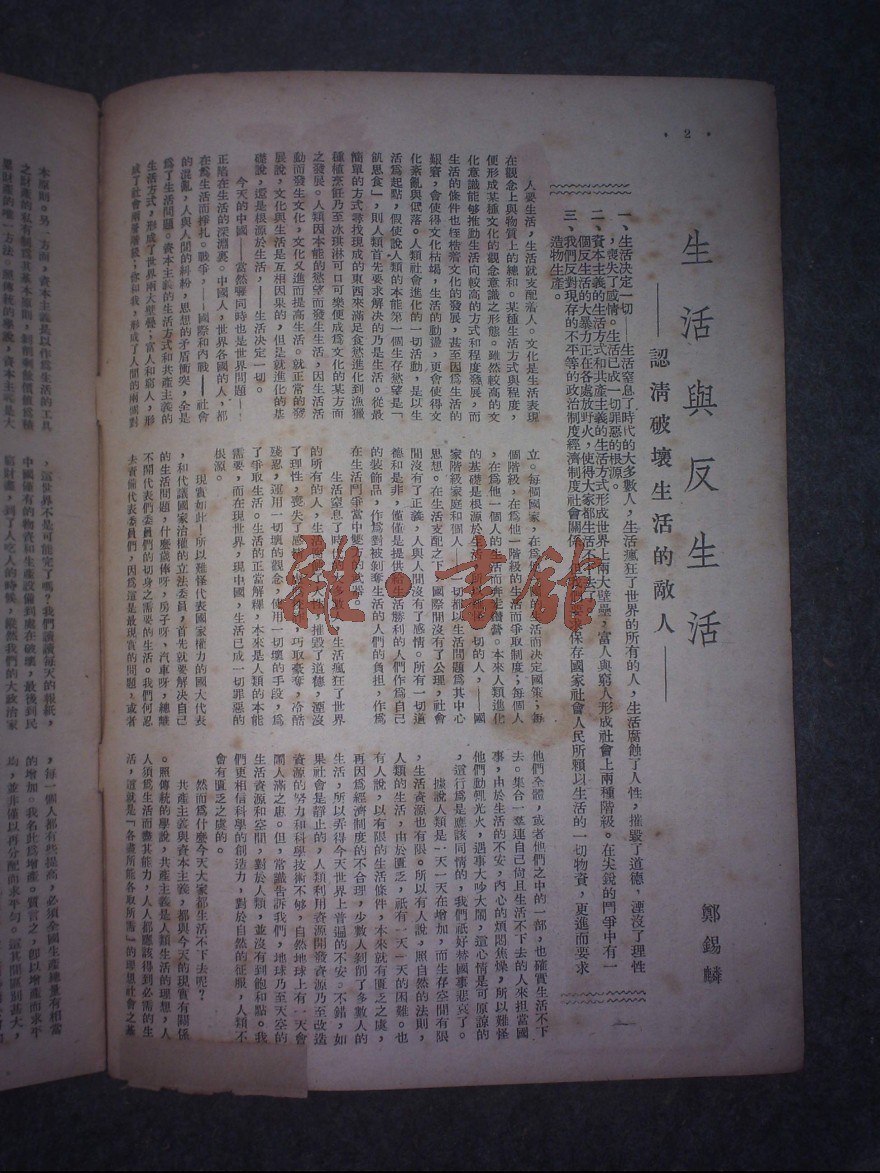 ·2·
生活與反生活
——認清破壞生活的敵人——
鄭錫麟
一、生活決定一切——生活窒息了時代的大多數人,生活瘋狂了世界的所有的人,生活腐蝕了人性,摧毀了道德,湮沒了理性
,喪失了感情。生活已成一切罪惡的根源。
二、資本主義的生活方式和共產主義的生活方式形成世界上兩大壁壘,富人與窮人形成社會上兩種階級。在尖銳的鬥爭中有一
個反生活的大暴力正在各處放野火,使得大家都生活不下去了。
三、我們反對現存的不平等的政治制度經濟制度社會關係,要求保存國家社會人民所賴以生活的一切物資,更進而要求
造物生產。
一
人要生活,生活就支配着人。文化是生活表現
在觀念上與物質上的總和。某種生活方式與程度,
便形成某種文化的觀念意識之形態。雖然較高的文
化意識能够推動生活向較高的方式和程度發展,而
生活的條件也桎梏着文化的發展,甚至因爲生活的
艱窘,會使得文化枯塲,生活的動盪,更會使得文
化紊亂與低落。人類社會進化的一切活動,是以生
活爲起點,假使說人類的本能第一個生存慾望是「
飢思食」,則人類首先要求解決的乃是生活。從最
簡單的方式尋找現成的東西來滿足食慾進化到漁獵
種植烹飪乃至冰琪淋可口可樂便成爲文化的某方面
之發展。人類因本能的慾望而發生生活,因生活活
動而發生文化,文化又進而提高生活。就正常的發
展說,文化與生活是互相因果的,但是就進化的基
礎說,還是根源於生活,——生活決定一切。
今天的中國——當然響同時也是世界問題——,
正陷在生活的深淵裏。中國人,世界各國的人,都
在爲生活而掙扎。戰爭,——國際和內戰——社會
的混亂,人與人間的糾紛,思想的矛盾衝突,全是
爲了生活問題。資本主義的生活方式和共產主義的
生活方式,形成了世界兩大壁壘;富人和窮人,形
成了社會兩層階級;你和我,形成了人間的兩面對
立。每個國家,在爲他的國的生活而決定國策;每
個階級,在爲他一階級的生活而爭取制度;每個人
,在爲他一個人的生活而奔走鑽營。本來人類進化
的基礎是根源於生活,一切的人,——國
家階級家庭和個人——一切都以生活問題爲其中心
思想。在生活支配之下,國際間沒有了公理,社會
間沒有了正義,人與人間沒有了感情。所有一切道
德和是非,僅僅是提供給生活勝利的人們作爲自己
的裝飾品,作爲對被剝奪生活的人們的負担,作爲
在生活鬥爭當中雙方的武器。
生活窒息了時代的大多數人,生活瘋狂了世界
的所有的人,生活腐蝕了人性,摧毀了道德,湮沒
了理性,喪失了感情。巧取豪奪,冷酷
殘忍,運用一切壞的觀念,使用一切壞的手段,爲
了爭取生活。生活的正當解釋,本來是人類的本能
需要,而在現世界,現中國,生活已成一切罪惡的
根源。
現實如此,所以難怪代表國家權力的國大代表
,和代議國家治權的立法委員,首先就要解决自己
的生活問題,什麼歲俸呀,房子呀、汽車呀,總離
不開代表們委員們的切身之需要的生活。我們何忍
去責備代表委員們,因爲這是最現實的問題,或者
他們全體,或者他們之中的一部,也確實生活不下
去。集合一羣連自己尙且生活不下去的人來担當國
事,由於生活的不安,內心的煩悶焦燥,所以難怪
他們動輒光火,遇事大吵大鬧,這心情是可原諒的
,這行爲是應該同情的,我們祇好替國事悲哀了。
據說人類是一天一天在增加,而生存空間有限
,生活資源也有限。所以有人說,照自然的法則,
人類的生活,由於匱乏,祇有一天一天的困難。也
有人說,以有限的生活條件,本來就有匱乏之虞,
再因爲經濟制度的不合理,少數人剝削了多數人的
生活,所以弄得今天世界上普遍的不安。不錯,如
果社會是靜止的,人類利用資源開發資源乃至改造
資源的努力和科學技術不够,自然地球上有一天會
鬧人滿之患。但,常識告訴我們,地球乃至天空的
生活資源和空間,對於人類,並沒有到飽和點。我
們更相信科學的創造力,對於自然的征服,人類不
會有匱乏之虞的。
然而爲什麼今天大家都生活不下去呢?
共產主義與資本主義,都與今天的現實有關係
。照傳統的學說,共產主義是人類生活的理想,人
人須爲生活而盡其能力,人人都應該得到必需的生
活,這就是「各盡所能各取所需」的理想社會之基
本原則。另一方面,資本主義是以作爲生活的工具
之財產的私有制爲其基本原則,
累財產的唯一方法。照傳統的學說,資本主義是大
,這世界不是可能完了嗎?我們讀讀每天的報紙,
中國僅有的物資和生產設備到處在破壞,最後到民
窮財盡,到了人吃人的時候,縱然我們的大政治家
,每一個人都有些提高,必須全國生產總量有相當
的增加。我名此爲增產。質言之,卽以增產而求平
均,並非僅以再分配而求平勻。這其間區別甚大,
雜·書館